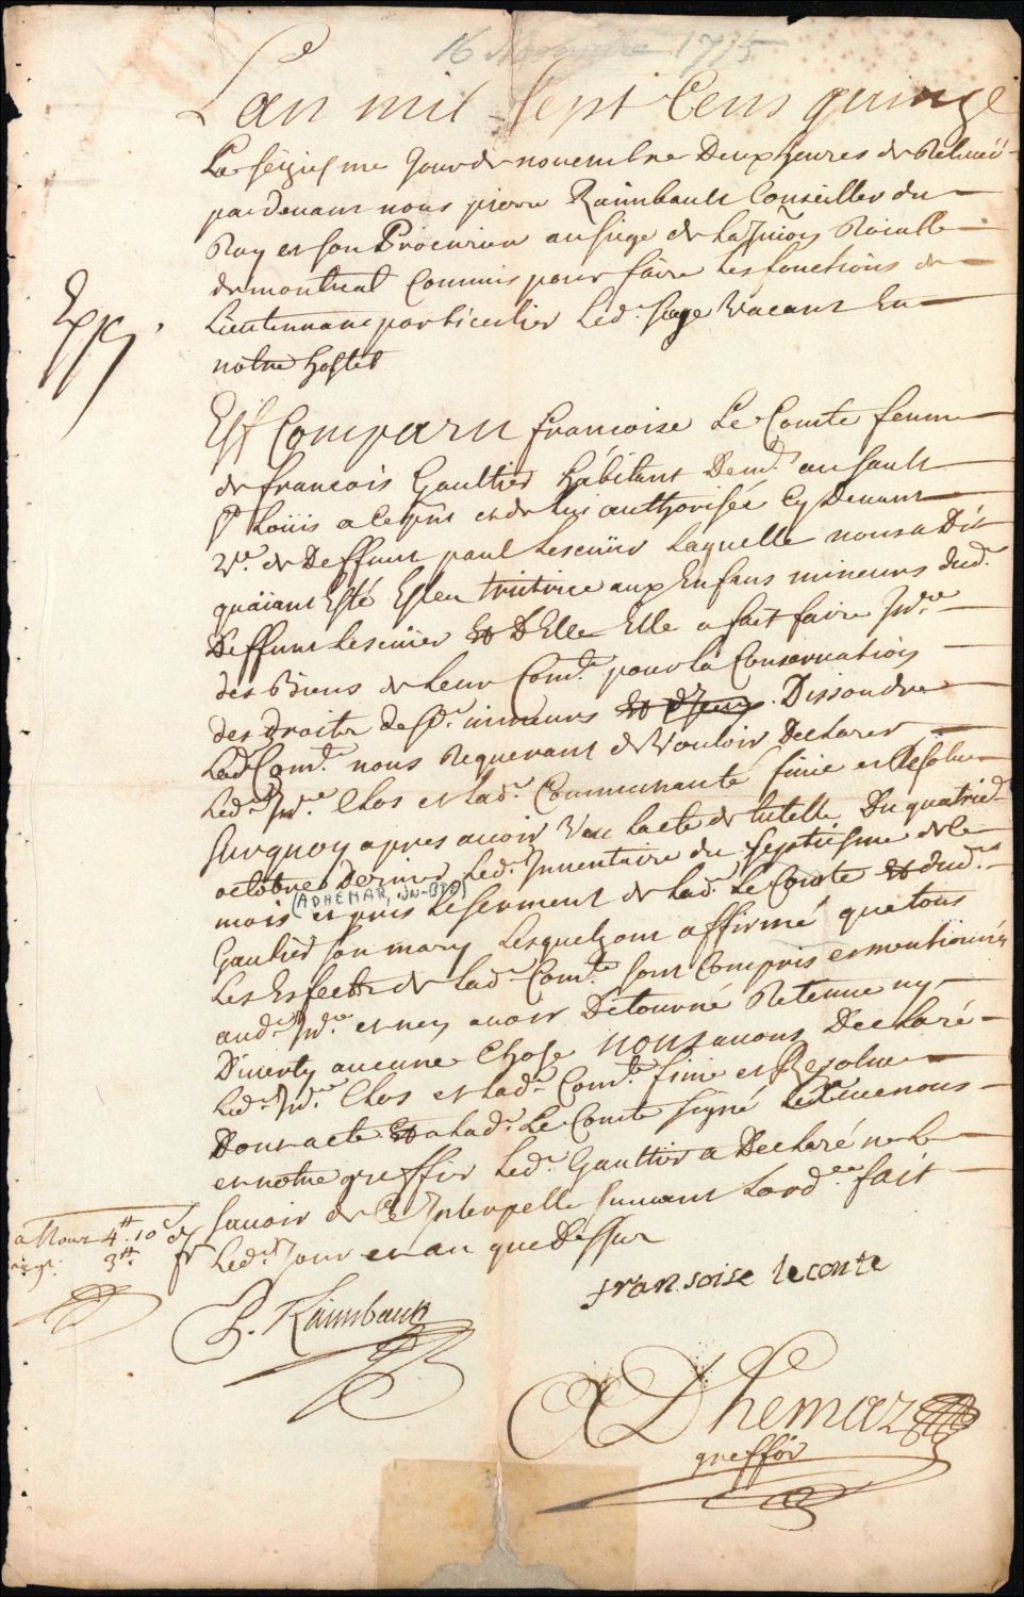 16 Novembre 1715
L'an mil Sept Cens quinze
Le seiziesme Jour de novembre Deux heures de Relevée
pardevant nous pierre Raimbault Conseiller du
Roy et son Procureur au siege de la Juron Roialle
de montreal Commis pour faire les fonctions de
Lieutennant particulier Led. siege Vacant En
notre hostel
Exp.
Est Comparu francoise Le Comte femme
de francois Gaultier habitant Demt. au sault
St Loüis a ce pnt et de luy authorisée Cy Devant
Ve. de Deffunt paul Lescuier Laquelle nous a Dit
quaiant Esté Esleu tutrice aux Enfans mineurs dud.
Deffunt Lescuier Et D'Elle Elle a fait faire Jnre
des Biens de leur Comte. pour la Conservation
des droits desd. mineurs Et Dissoudre
Lad. Comte. nous Requerant de Vouloir Declarer
Led. Jnre. Clos et lad. Communauté finie et Resolue
surquoy apres avoir Veu lacte de tutelle Du quatrie.
octobre Dernier Led. Jnventaire du septiesme de ce
(ADHEMAR, JN-BTE)
mois et pris Le serment de lad. Le Comte Et dud.
Gaultier son mary Lesquelz ont affirmé que tous
Les Esfects de lad. Comte. sont Compris et mentionnés
aud. Jnre. et ney avoir Detourné Retenue ny
Diverty aucune Chose nous avons Declaré
Led. Jnre. Clos et lad. Comte. finie et Resolue
Dont acte Et a lad. Le Comte signé avec nous
et notre greffier Led. Gaultier a Declaré ne le
savoir de Ce Jnterpellé suivant Lordce. fait
Led. Jour et an que Dessus
a Nous 4tt. 10s
3tt.
fransoise leconte
P. Raimbault
ADhemar
greffier